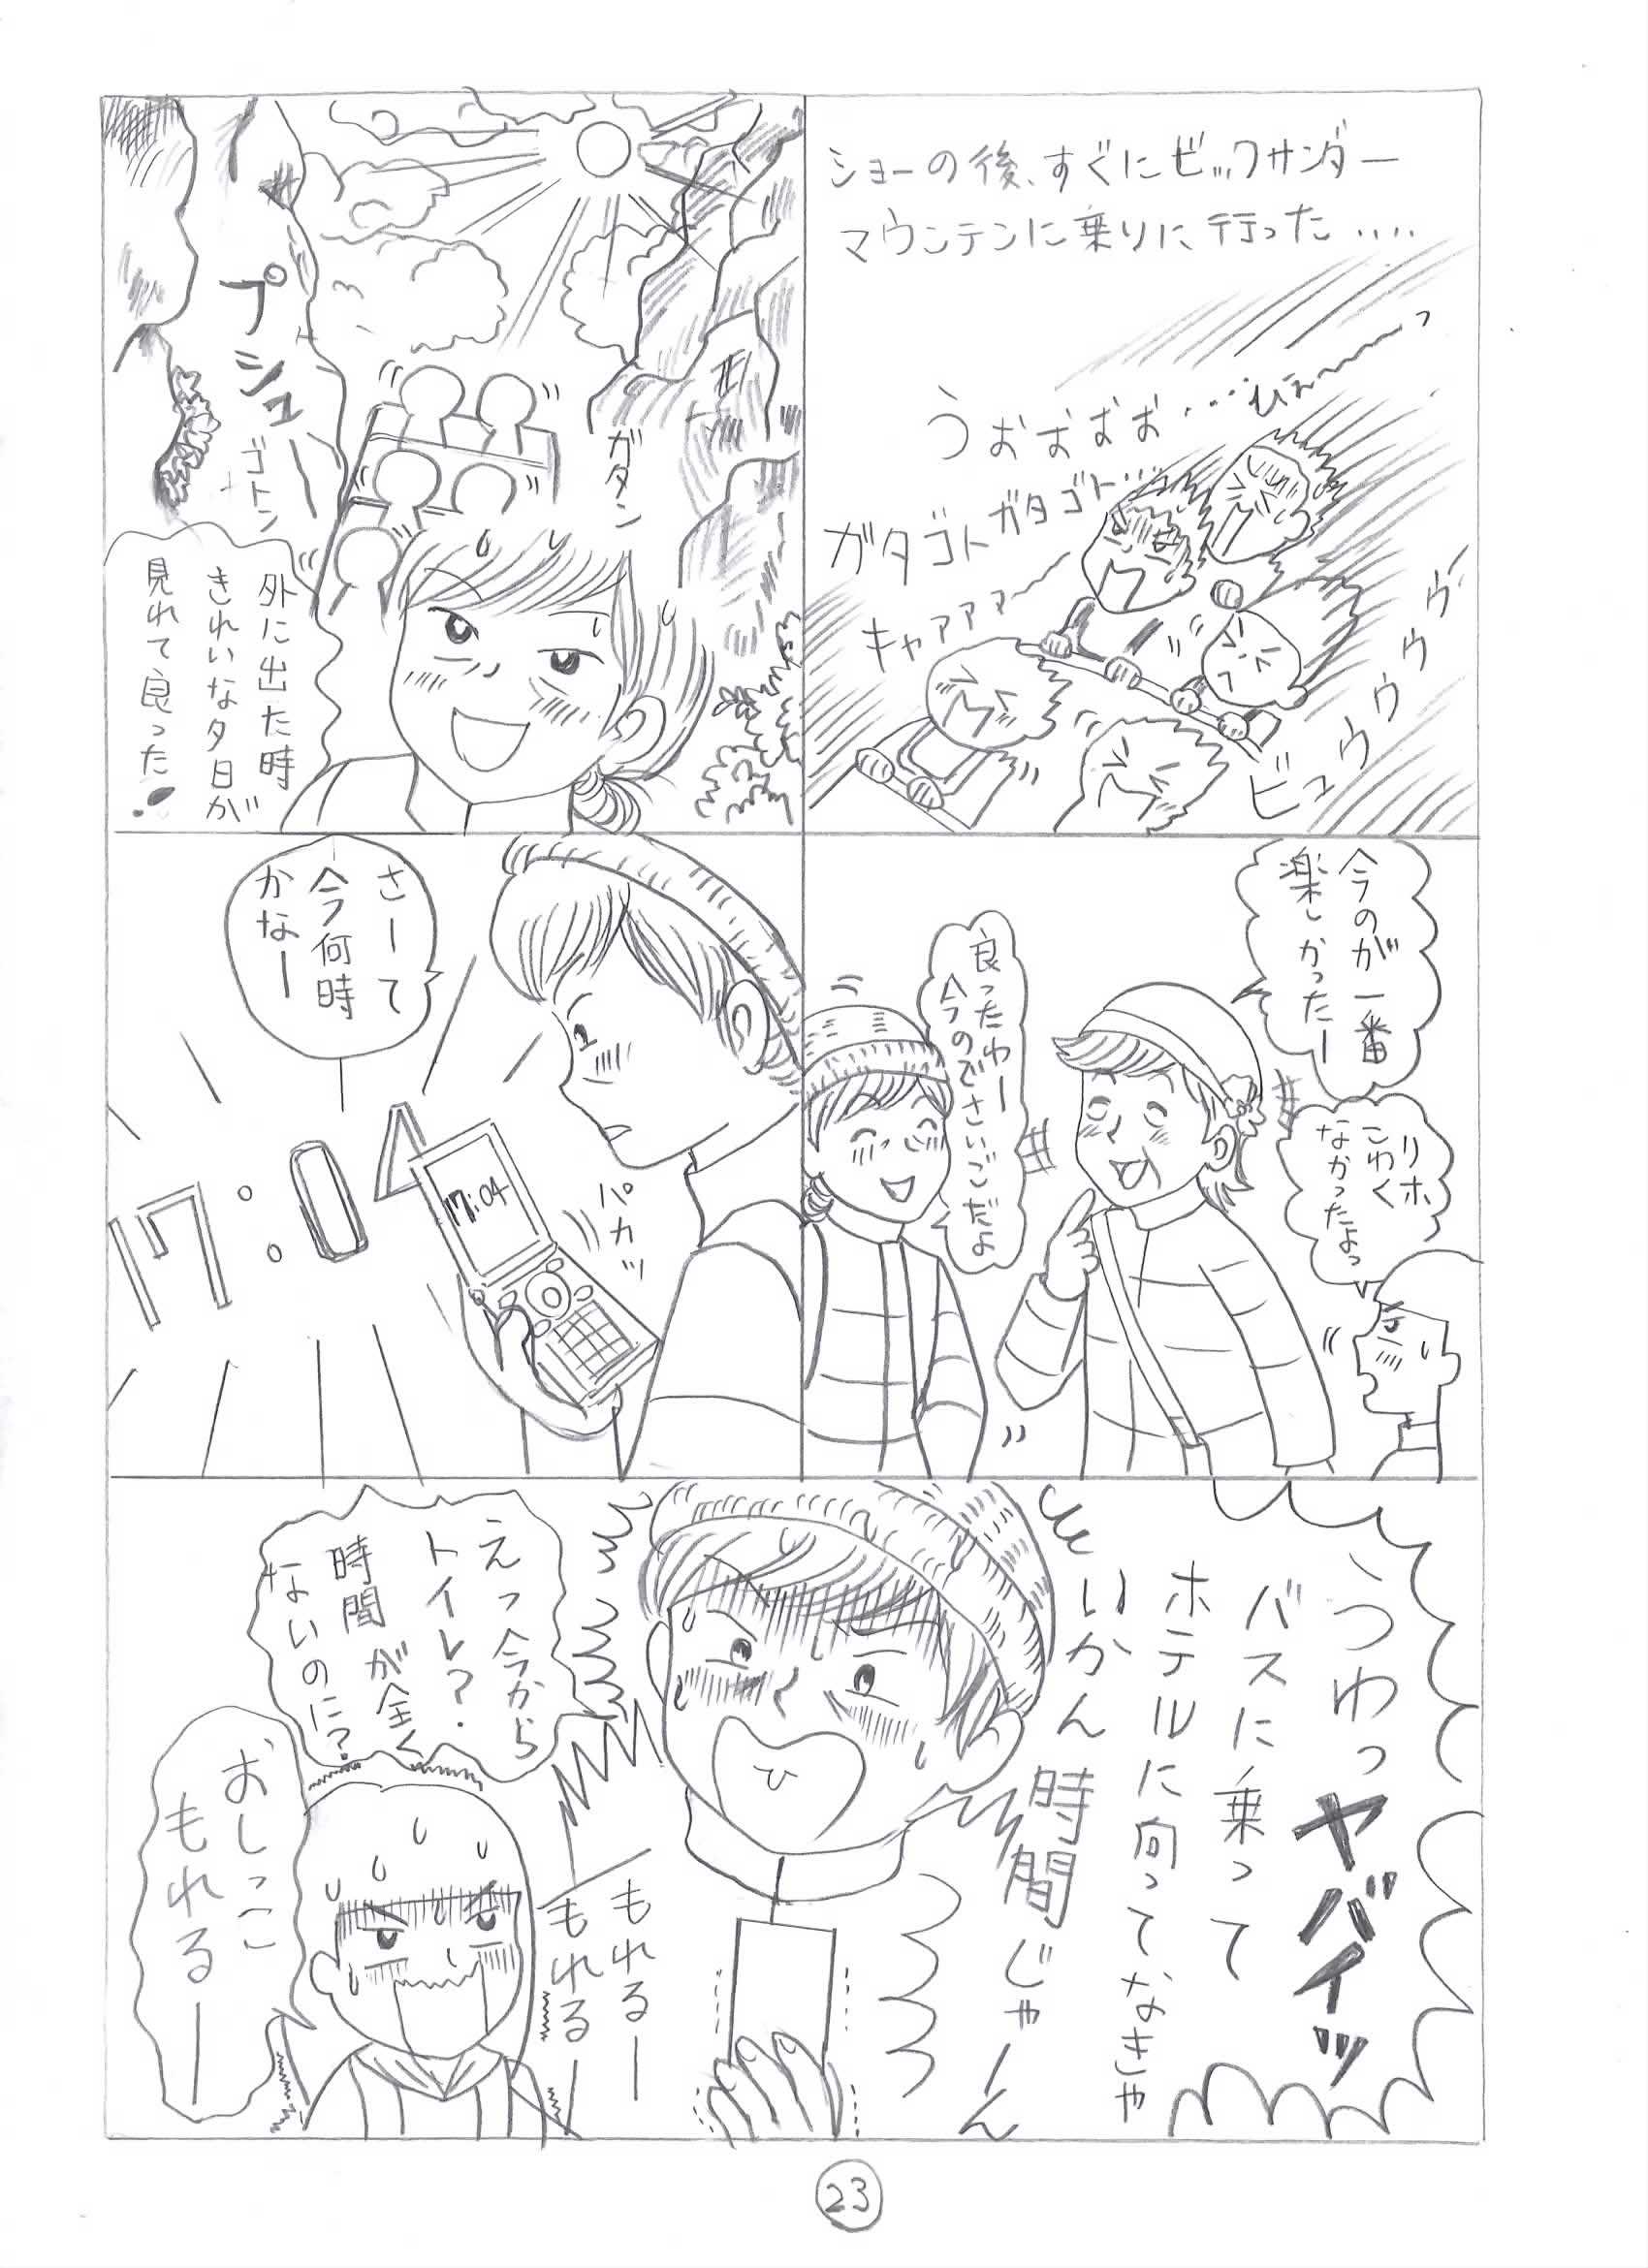 ショーの後、すぐにビックサンダー
マウンテンに乗りに行った....
うぉぉぉぉ……ひぇ〜〜っ
ガタゴトガタゴト…
キャァァァー
ビュウウウウヴ
プシューー
ゴトン
ガタン
外に出た時
きれいな夕日が
見れて良った!
今のが一番
楽しかったー
良ったわー
今のでさいごだよ
リホ
こわく
なかったよっ
さーて
今何時
かなー
17:04
17:04
パカッ
うわっ
ヤバイッ
バスに乗って
ホテルに向ってなきゃ
いかん時間じゃーん
えっ今から
トイレ?
時間が全く
ないのに?
もれるー
もれるー
おしっこ
もれるー
23